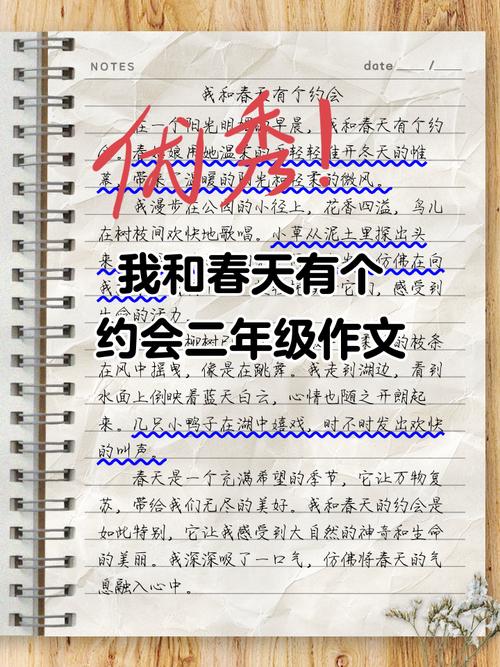 NOTES
date /
我和春天有个约会
优秀!
在一个阳光明媚的早晨，我和春天有个约
会。春姑娘用她温柔的手轻轻推开冬天的帷
幕，带来了温暖的阳光和轻柔的微风。
我漫步在公园的小径上，花香四溢，鸟儿
在树枝间欢快地歌唱。小草从泥土里探出头
来 仿佛在向
我和春天有个
我 它们，感受到
生命的活力。
约会二年级作文
柳树 的枝条
在风中摇曳，像是在跳舞。我走到湖边，看到
水面上倒映着蓝天白云，心情也随之开朗起
来。几只小鸭子在湖中嬉戏，时不时发出欢快
的叫声。
春天是一个充满希望的季节，它让万物复
苏，带给我们无尽的美好。我和春天的约会是
如此特别，它让我感受到大自然的神奇和生命
的美丽。我深深吸了一口气，仿佛将春天的气
息融入心中。